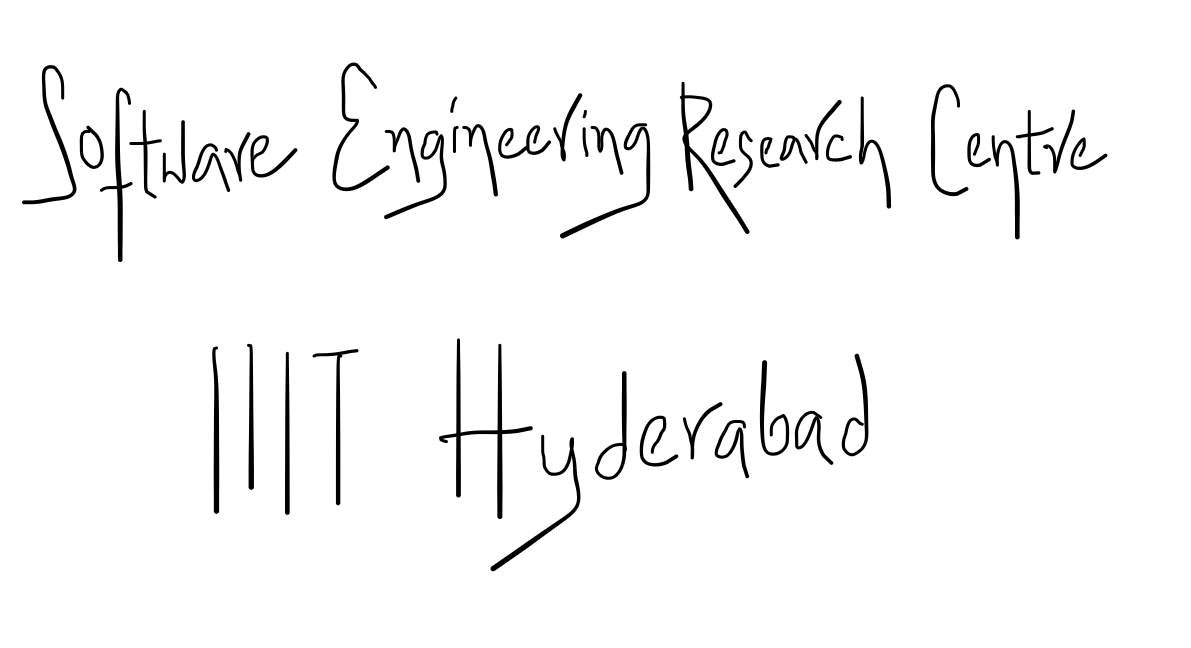 Software Engineering Research Centre
IIIT Hyderabad